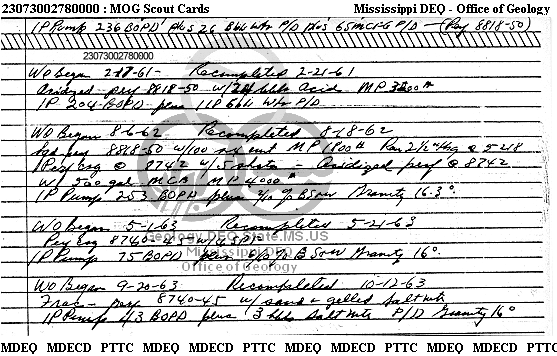 23073002780000 : MOG Scout Cards Mississippi DEQ - Office of Geology
IP Pump 236 BOPD plus 26 Bbl Wtr P/D plus 65 MCFG P/D - (Perf 8818-50)
23073002780000
WO Began 2-17-61 - Recompleted 2-21-61
Acidized - perf 8818-50 w/ bbls Acid MP 3200#
IP 204 BOPD plus 11 Bbl Wtr P/D
WO Began 8-6-62 Recompleted 8-18-62
Sqd perf 8818-50 w/100 sx cmt MP 1800# Ran 2 1/2" tbg @ 5218
Perf Csg @ 8742 w/ 5 shots - Acidized perf @ 8742
w/ 500 gal MCA MP 4000#
IP Pump 253 BOPD plus BS&W Gravity 16.3°
WO Began 5-1-63 Recompleted 5-21-63
Perf Csg 8740-45 w/ 4 SPF
IP Pump 75 BOPD plus BS&W Gravity 16°
Geology.DEQ.State.MS.US
Mississippi DEQ
Office of Geology
WO Began 9-20-63 Recompleted 10-12-63
Frac - perf 8740-45 w/ sand & gelled salt wtr
IP Pump 43 BOPD plus 3 bbls Salt Wtr P/D Gravity 16°
MDEQ MDECD PTTC MDEQ MDECD PTTC MDEQ MDECD PTTC MDEQ MDECD PTTC